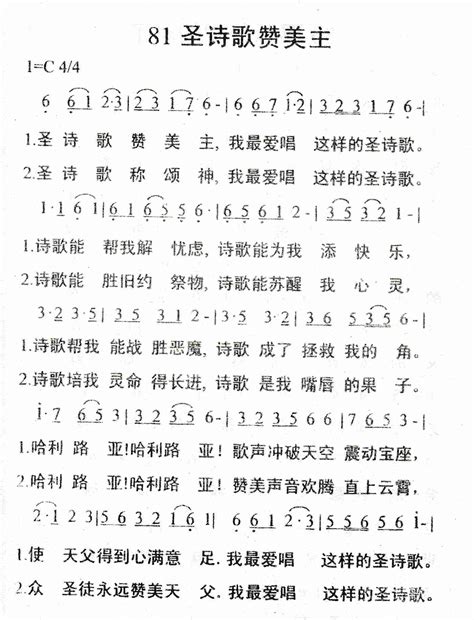 81 圣诗歌赞美主
1=C 4/4
6 6 1 2·3|1 2 3 1 7 6-|6 6 7 1·2|3 2 3 1 7 6-|
1.圣 诗 歌 赞 美 主,我最爱唱 这样的圣诗歌。
2.圣 诗 歌 称 颂 神,我最爱唱 这样的圣诗歌。
1·1 6 1|6 1 6 5 5 6·|1·6 5 6 1 2-|3 5 3 2 1-|
1.诗歌能 帮我解 忧虑,诗歌能为我 添 快乐,
2.诗歌能 胜旧约 祭物,诗歌能苏醒 我 心灵,
3·2 3·5|3 5 3 5 6-|3·2 3·6|5 6 5 3 2-|
1.诗歌帮我 能战 胜恶魔,诗歌 成了 拯救 我的 角。
2.诗歌培我 灵命 得长进,诗歌 是我 嘴唇 的果 子。
i·7 6 5 3|
1.哈利 路 亚!哈利路 亚!歌声冲破天空 震动宝座,
2.哈利 路 亚!哈利路 亚!赞美声音欢腾 直上云霄,
1.使 天父得到心满意 足.我最爱唱 这样的圣诗歌。
2.众 圣徒永远赞美天 父.我最爱唱 这样的圣诗歌。